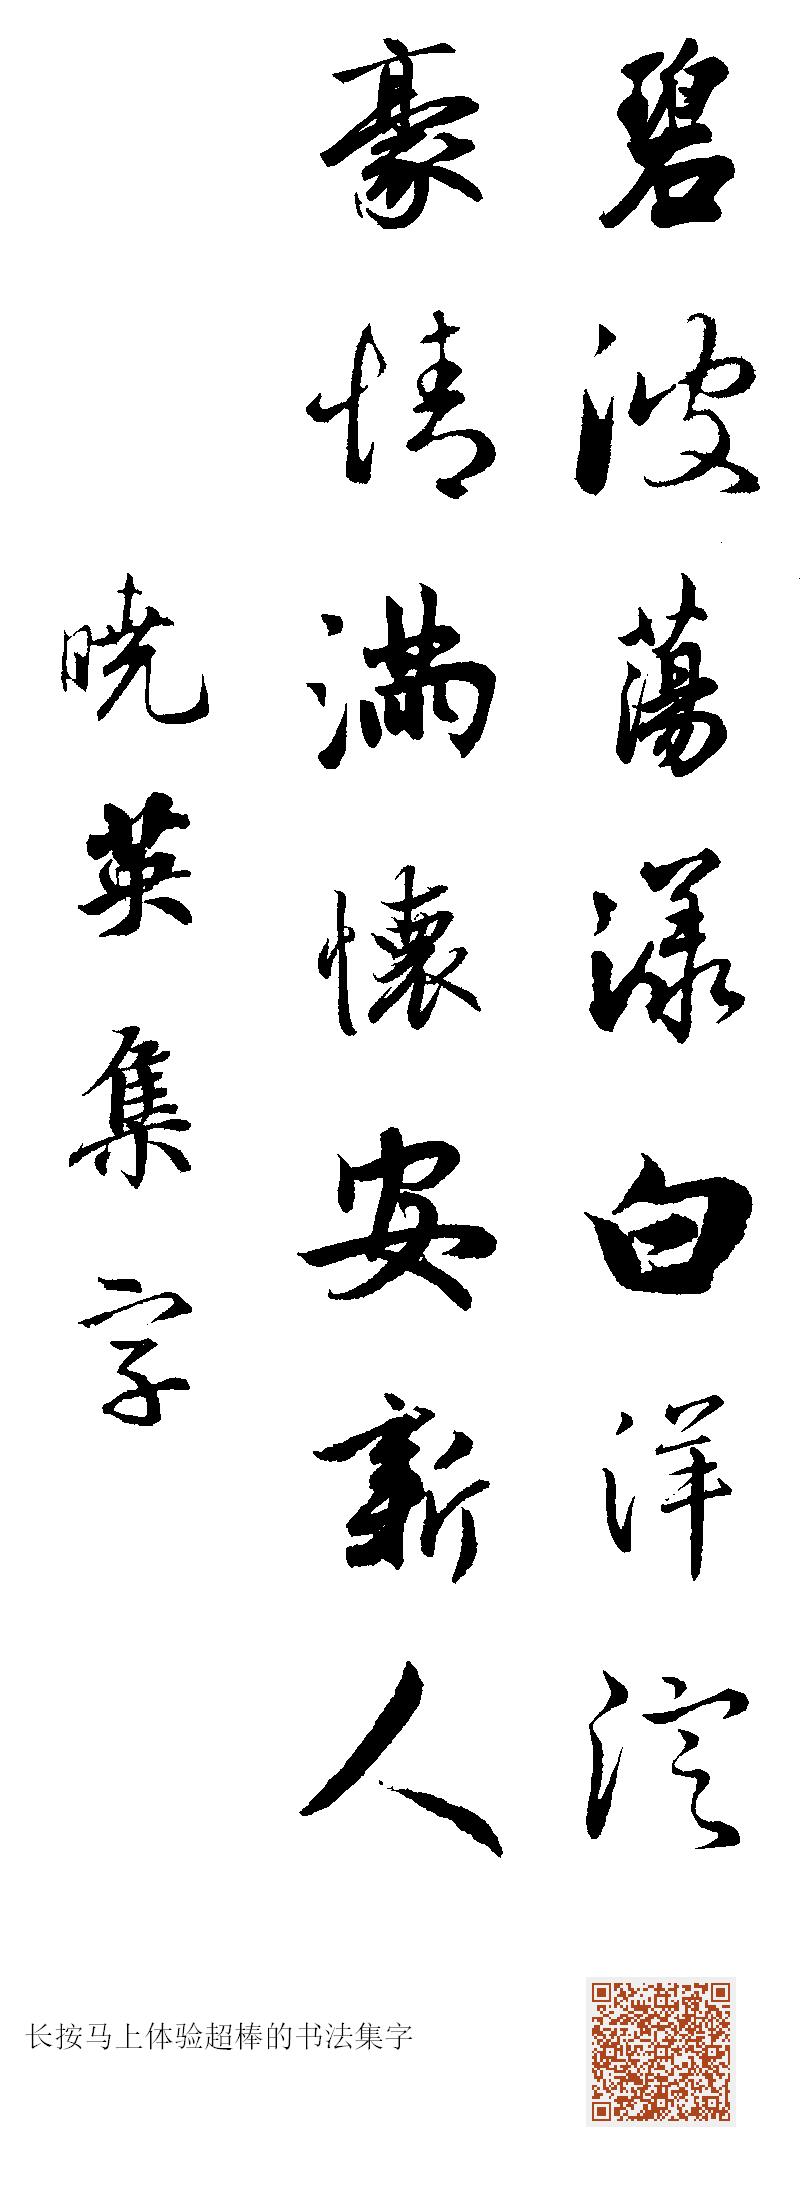 碧波蕩漾白洋淀
豪情滿懷安新人
曉英集字
长按马上体验超棒的书法集字